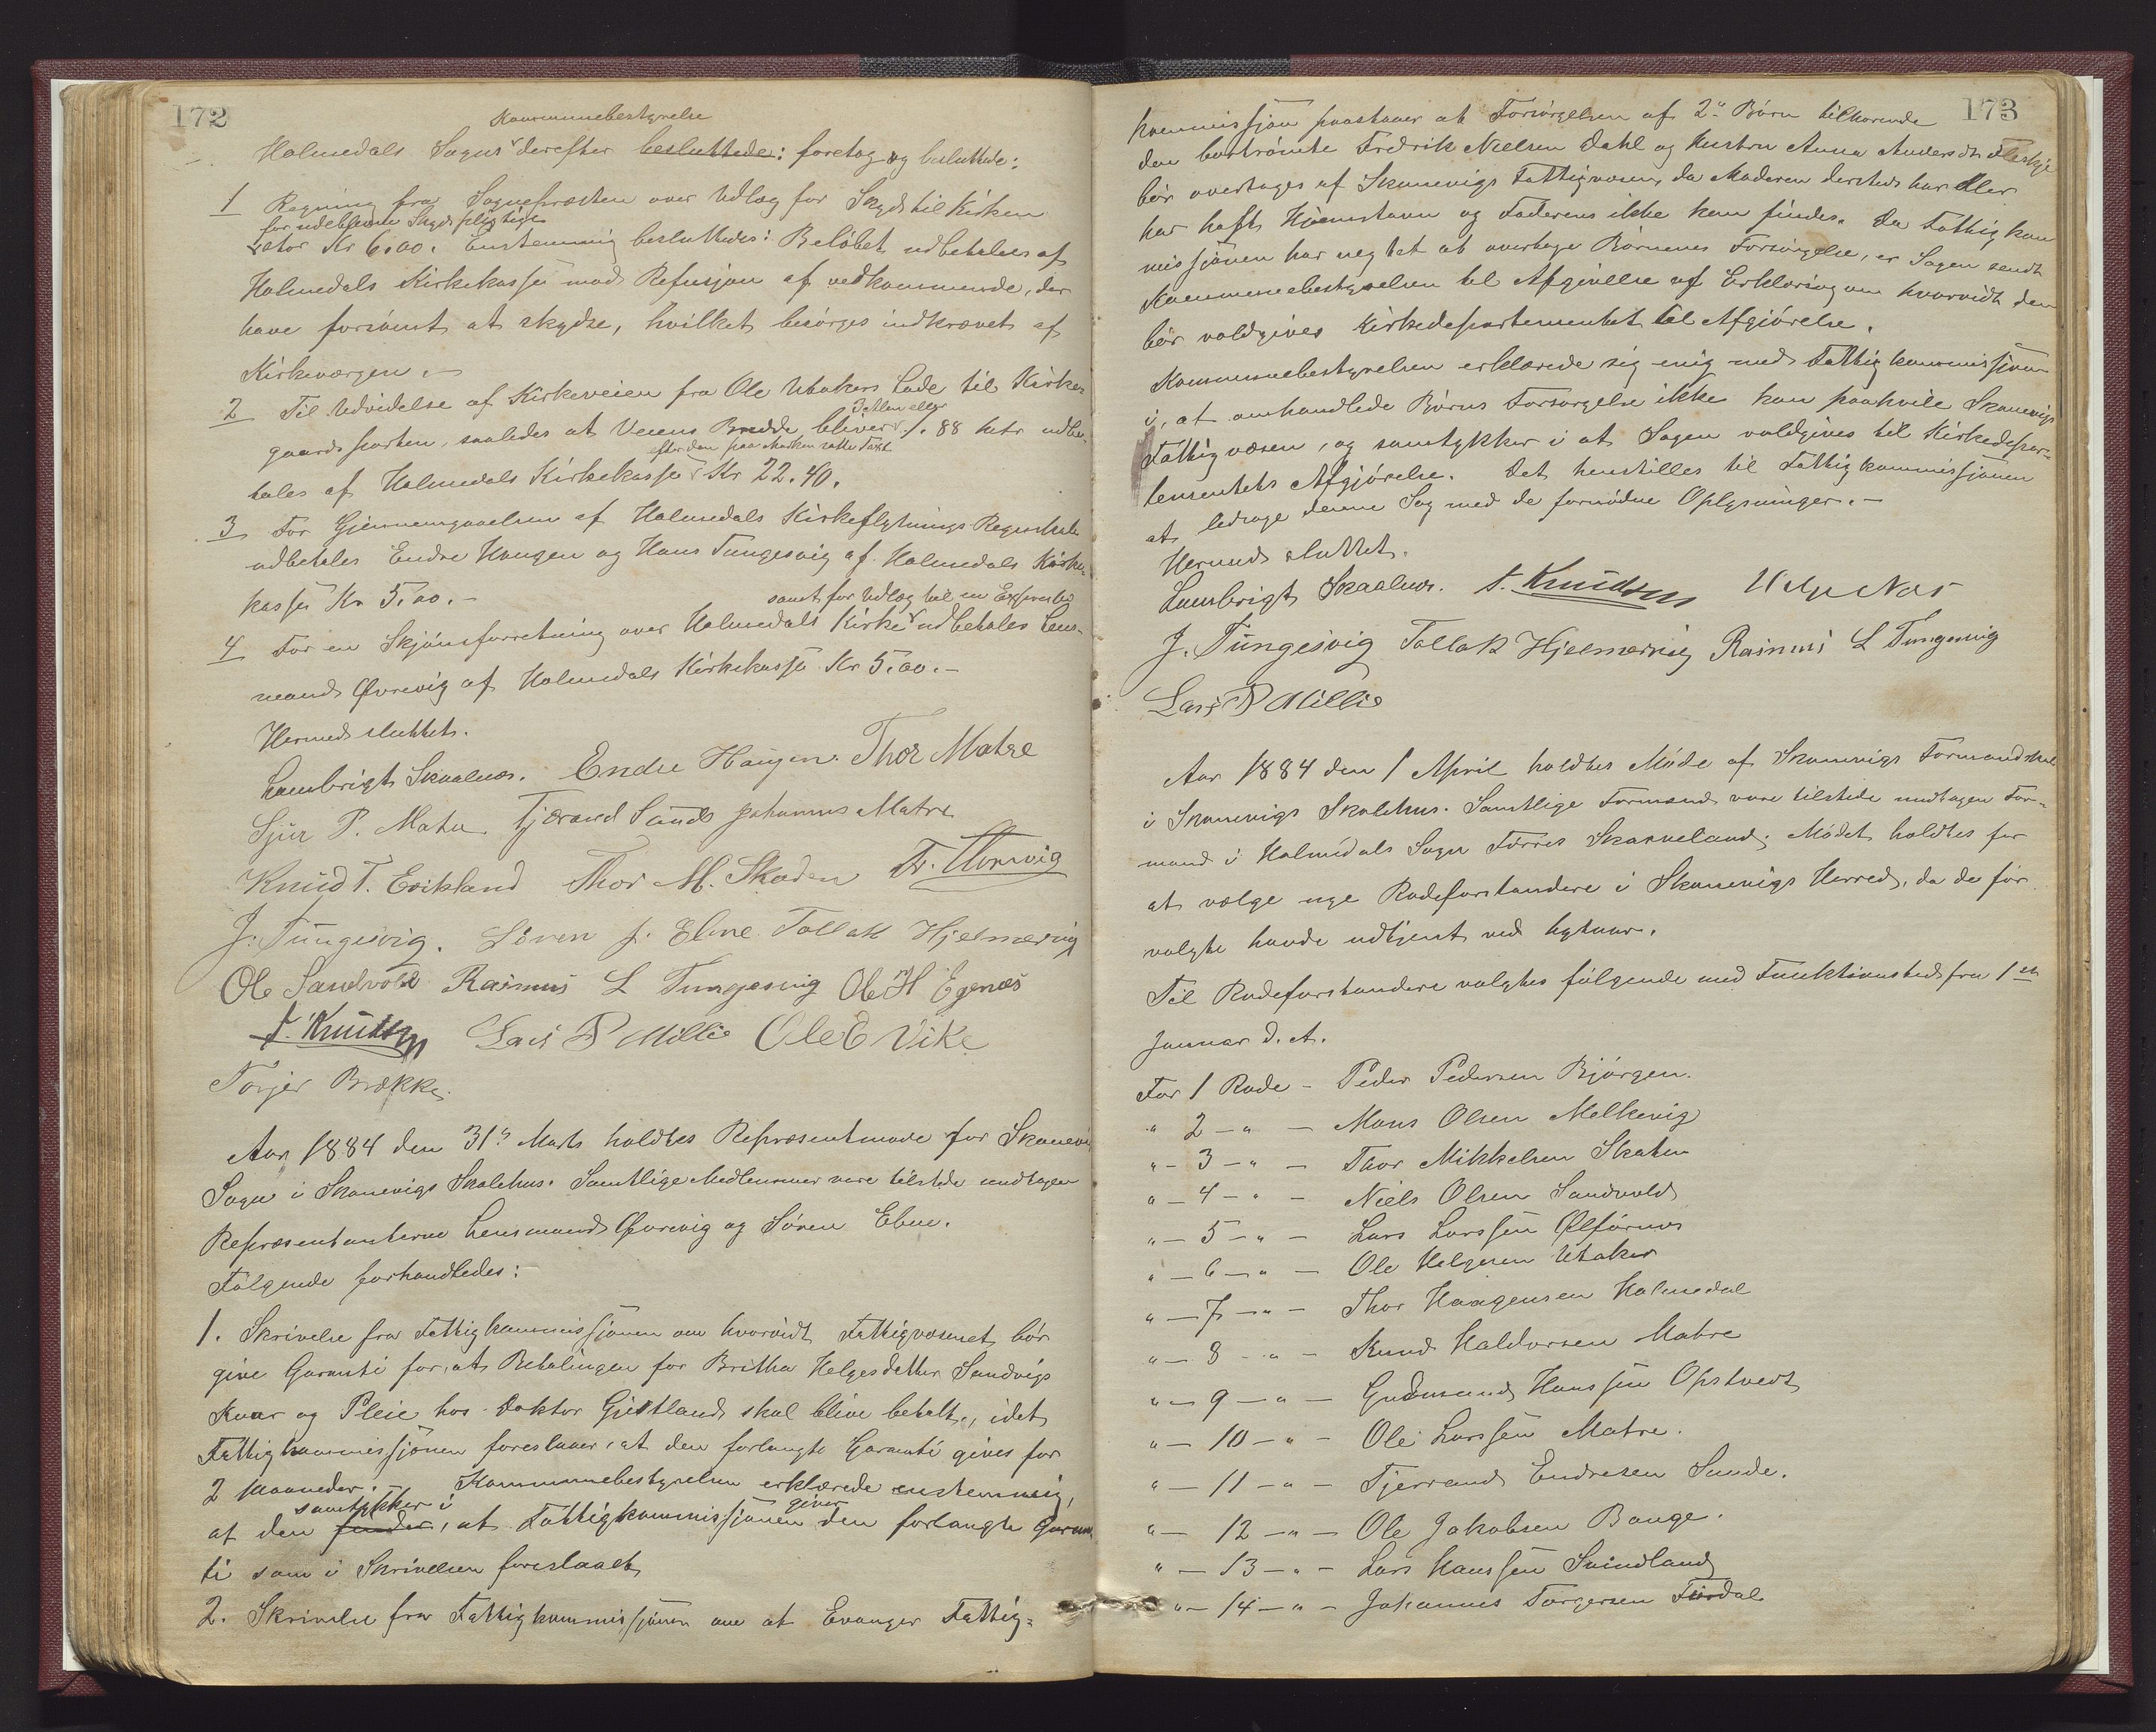 172
Kommunebestyrelse
Holmedals Sogns derefter besluttede: foretog og besluttede:
1 Regning fra Sognepræsten over Udlæg for Skyds til Kirken
for udeblevne Skydspligtige
stor Kr 6,00. Enstemmig besluttedes: Beløbet udbetales af
Holmedals Kirkekasse mod Refusjon af vedkommende, der
have forsømt at skydse, hvilket besørges indkrævet af
Kirkeværgen.-
2 Til Udvidelse af Kirkeveien fra Ole Utakers Lade til Kirke-
gaardsporten, saaledes at Veiens Bredde bliver 88 udbe-
efter den paa Marken satte Taxt
tales af Holmedals Kirkekasse Kr 22.40.
3 For Gjennemgaaelsen af Holmedals Kirkeflytnings Regnskab
udbetales Endre Haugen og Hans Tungesvig af Holmedals Kirke-
kasse Kr 5,00.-
samt for Udlæg til en Expresbud
4 For en Skjønsforretning over Holmedals Kirke udbetales Lens-
mand Øvrevig af Holmedals Kirkekasse Kr 5,00.-
Hermed sluttet.
Lambrigt Skaalnes. Endre Haugen. Thor Matre
Sjur P. Matre Tjerand Sunde Johannes Matre
Knud T. Eikland Thor M. Skaden
J. Tungesvig. Sören J. Ebne Tollak Hjelmervig
Ole Sandvold Rasmus L Tungesvig Ole H Egenæs
T. Knudsen Lars P Millie Ole E Vike
Torjer Brække.
Aar 1884 den 31te Marts holdtes Repræsentmøde for Skonevi
Sogn i Skonevigs Skolehus. Samtlige Medlemmer vare tilstede undtagen
Repræsentanterne Lensmand Øvrevig og Søren Ebne.
Følgende forhandledes:
1. Skrivelse fra Fattigkommissjonen om hvorvidt Fattigvæsenet bør
give Garanti for, at Betalingen for Britha Helgesdatter Sandvigs
Kuur og Pleie hos Doktor Gjestland skal blive betalt, idet
Fattigkommissjonen foreslaaer, at den forlangte Garanti gives for
2 Maaneder.- Kommunebestyrelsen erklærede enstemmig,
samtykker i giver
at den finder, at Fattigkommissjonen den forlangte Garan
ti som i Skrivelsen foreslaaet
2. Skrivelse fra Fattigkommissjonen om at Evanger Fattig-
173
kommissjon paastaaer at Forsørgelsen af 2de Børn tilhørende
den bortrømte Fredrik Nielsen Dahl og Hustru Anna Andersdtr
bør overtages af Skonevigs Fattigvæsen, da Moderen dersteds har eller
har haft Hjemstavn og Faderens ikke kan findes. Da Fattigkom
missjonen har negtet at overtage Børnenes Forsørgelse, er Sagen sendt
Kommunebestyrelsen til Afgivelse af Erklæring om hvorvidt den
bør voldgives Kirkedepartementet til Afgjørelse.
Kommunebestyrelsen erklærede sig enig med Fattigkommissjonen
i, at omhandlede Børns Forsørgelse ikke kan paahvile Skonevigs
Fattigvæsen, og samtykker i at Sagen voldgives til Kirkedepar-
tementets Afgjørelse. Det henstilles til Fattigkommissjonen
at ledsage denne Sag med de fornødne Oplysninger.-
Hermed sluttet.
Lambrigt Skaalnes. T. Knudsen Helge Næs
J. Tungesvig Tollak Hjelmervig Rasmus L Tungesvig
Lars P Millie
Aar 1884 den 1 April holdtes Møde af Skonevigs Formandskab
i Skonevigs Skolehus. Samtlige Formænd vare tilstede undtagen For-
mand i Holmedals Sogn Tørres Skarveland. Mødet holdtes for
at vælge nye Rodeforstandere i Skonevigs Herred, da de før
valgte havde udtjent ved Nytaar.
Til Rodeforstandere valgtes følgende med Funktionstid fra 1ste
Januar d. A.
For 1 Rode - Peder Pedersen Bjørgen.
" 2 - " - Mons Olsen Melkevig
" - 3 - " - Thor Mikkelsen Skaten
" - 4 - " - Niels Olsen Sandvold
" - 5 - " - Lars Larssen Ølfærnes
" - 6 - " - Ole Helgesen Utaker
" - 7 - " - Thor Haagensen Holmedal
" - 8 - " - Knud Haldorsen Matre
" - 9 - " - Gudmund Hanssen Opstvedt
" - 10 - " - Ole Larssen Matre.
" - 11 - " - Tjerrand Endresen Sunde.
" - 12 - " - Ole Jakobsen Bauge.
" - 13 - " - Lars Hanssen Svindland
" - 14 - " - Johannes Torgersen Førdal